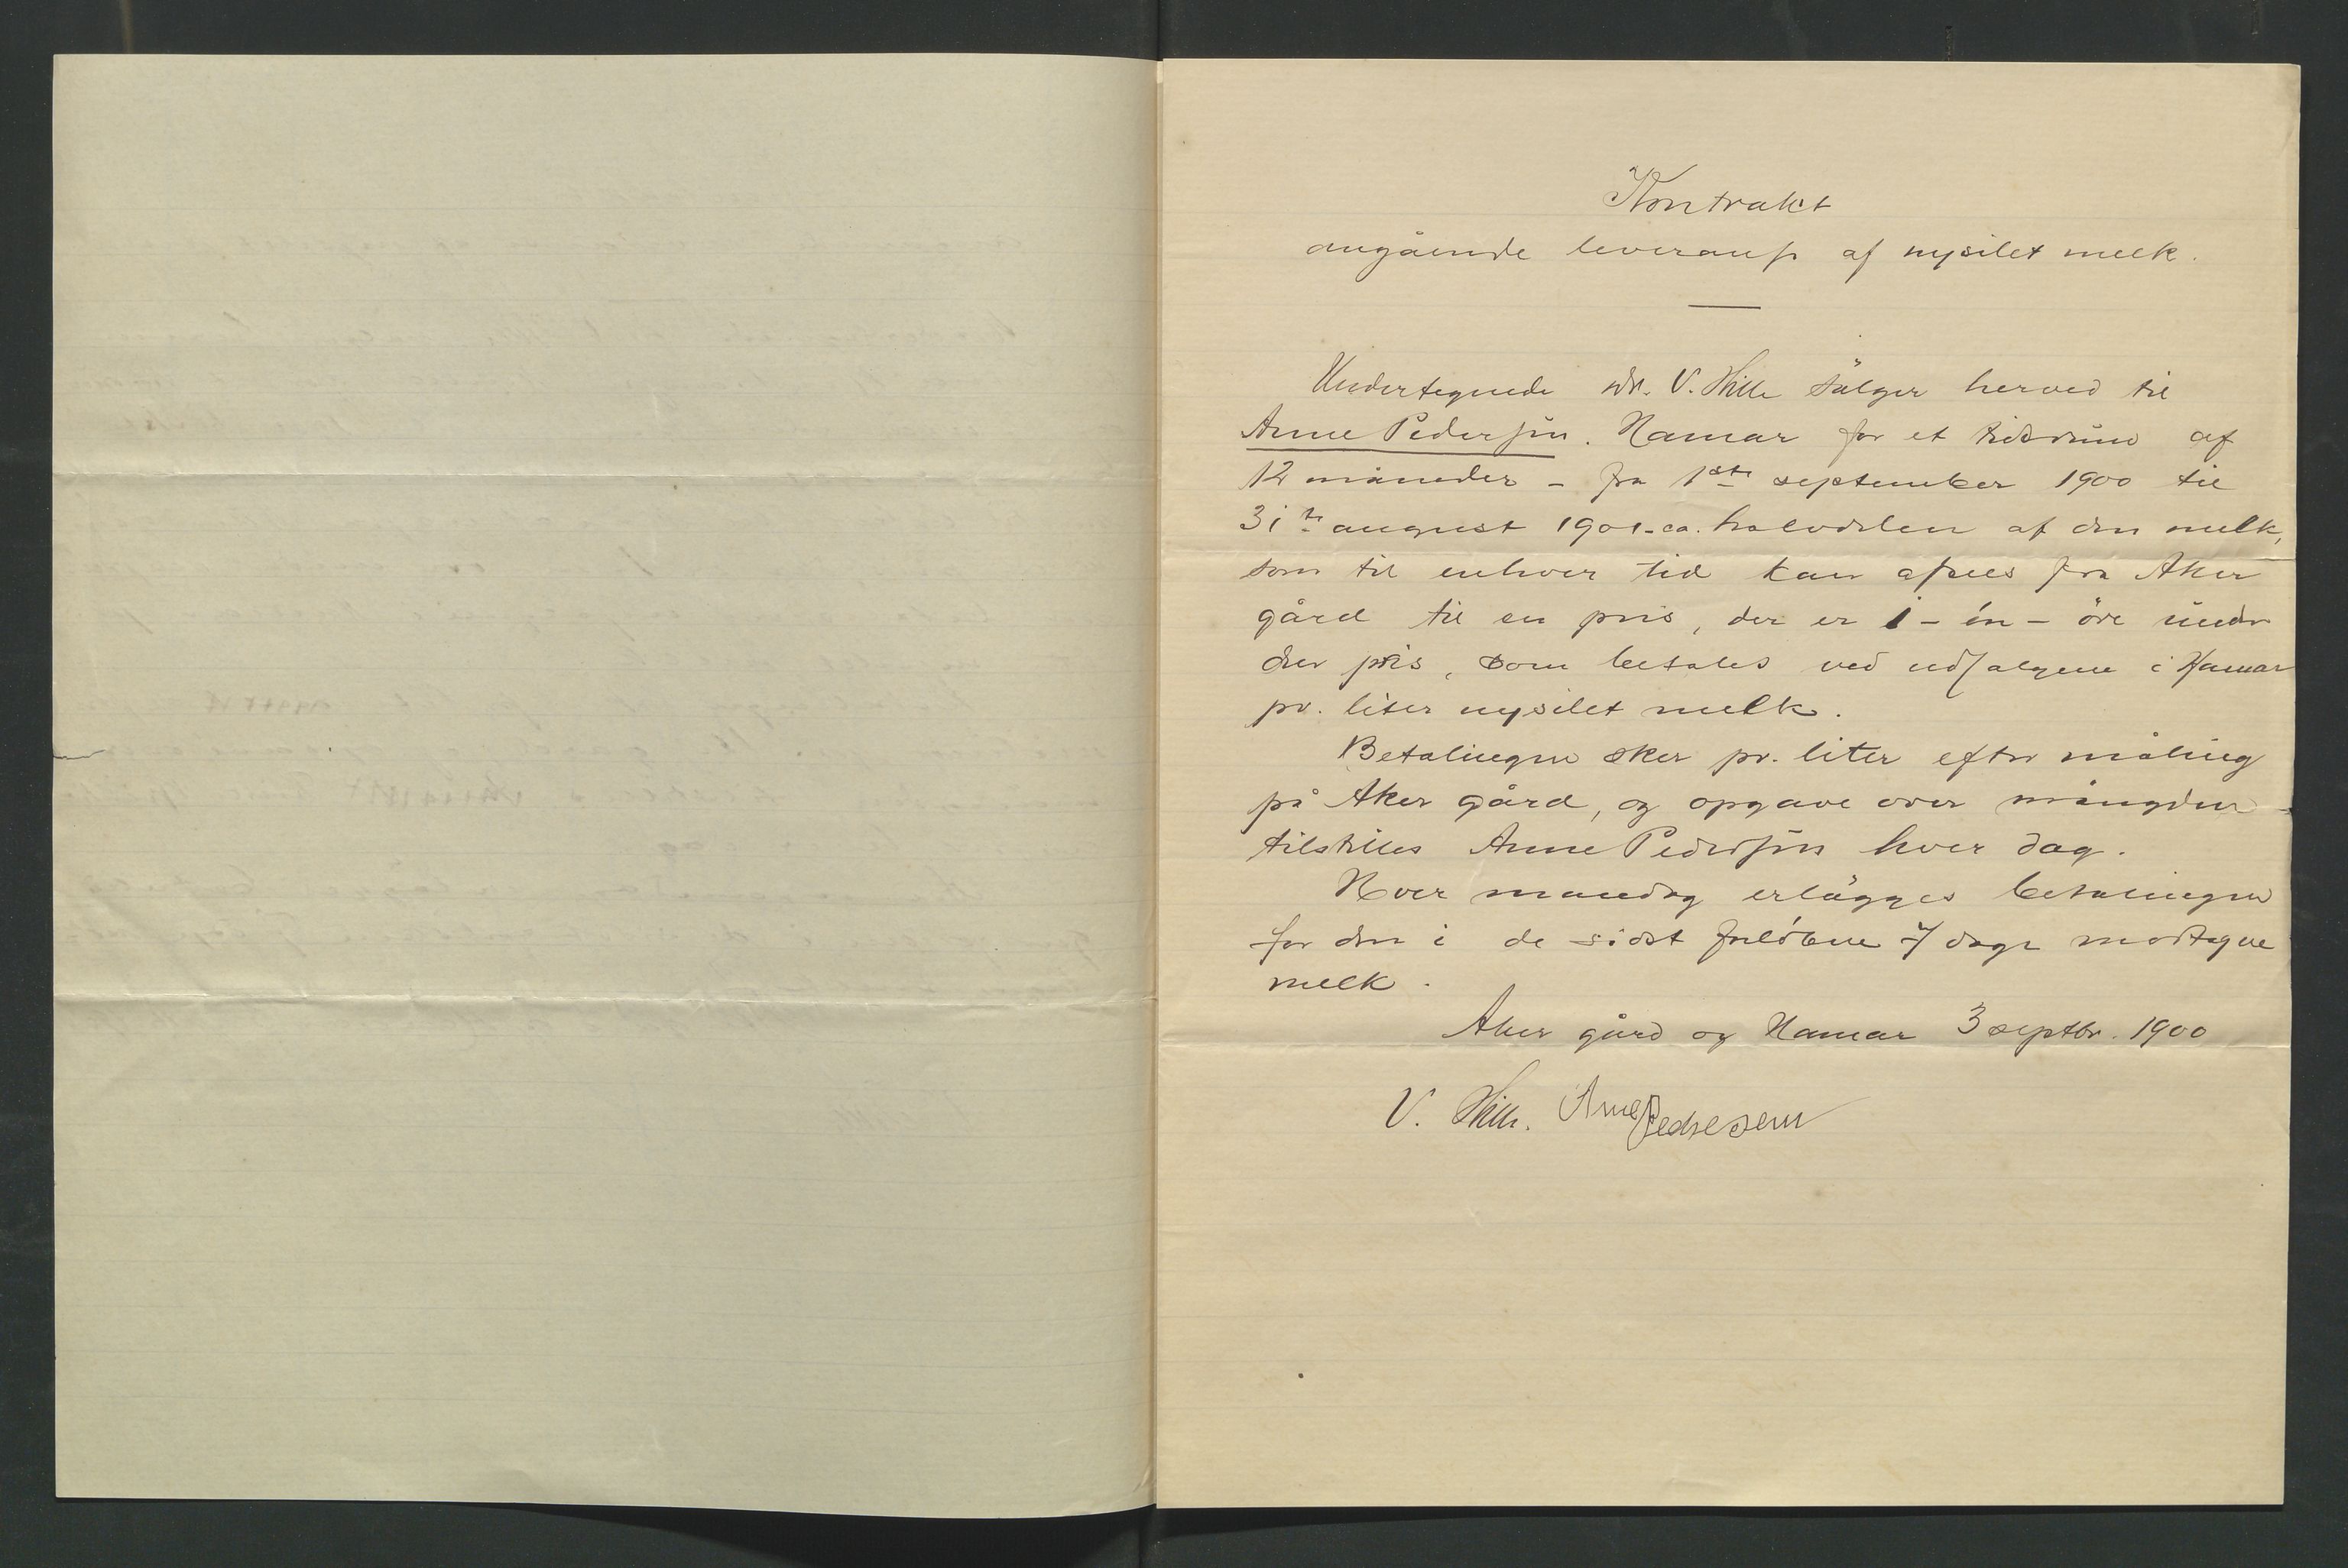 Kontrakt
angående leveranse af nysilet melk.
Undertegnede V. Hille sälger herved til
Anne Pedersen. Hamar for et tidsrum af
12 måneder - fra 1ste september 1900 til
31te august 1901 - ca. halvdelen af den melk,
som til enhver tid kan afsees fra Aker
gård til en pris, der er 1 - én - öre under
den pris, som betales ved udsalgene i Hamar
pr. liter nysilet melk.
Betalingen sker pr. liter efter måling
på Aker gård, og opgave over mängden
tilstilles Anne Pedersen hver dag.
Hver mandag erlägges betalingen
for den i de sidst forlöbne 7 dage modtagne
melk.
Aker gård og Hamar 3 septbr. 1900
V. Hille. Anne Pedresen